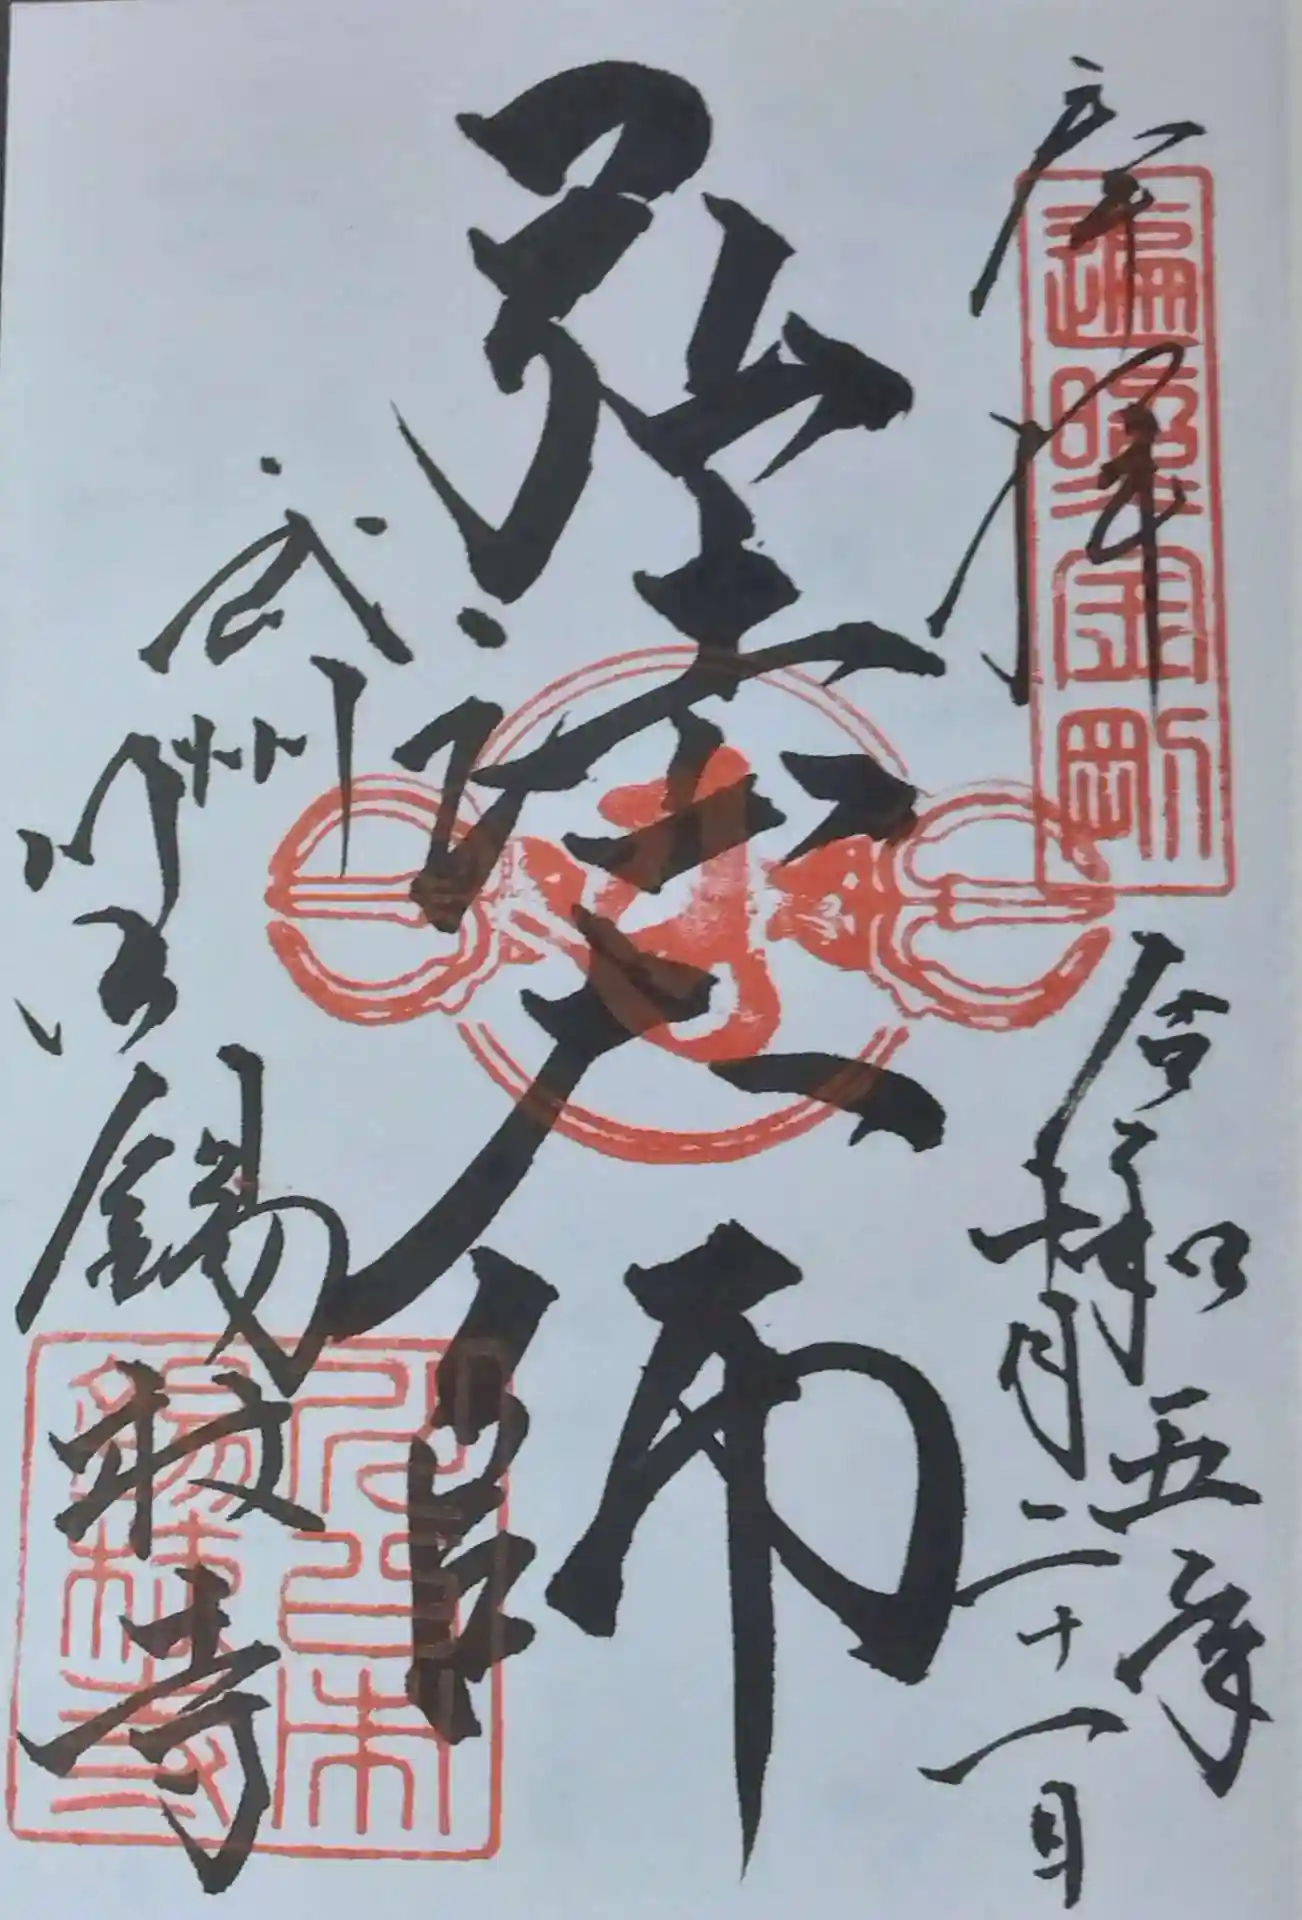 奉拝
遍照金剛
令和五年
月二十一日
弘法大師
武州川口
錫杖寺
錫杖寺